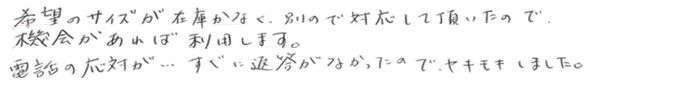 希望のサイズが在庫がなく、別ので対応して頂いたので、
機会があれば利用します。
電話の応対が… すぐに返答がなかったので、ヤキモキしました。